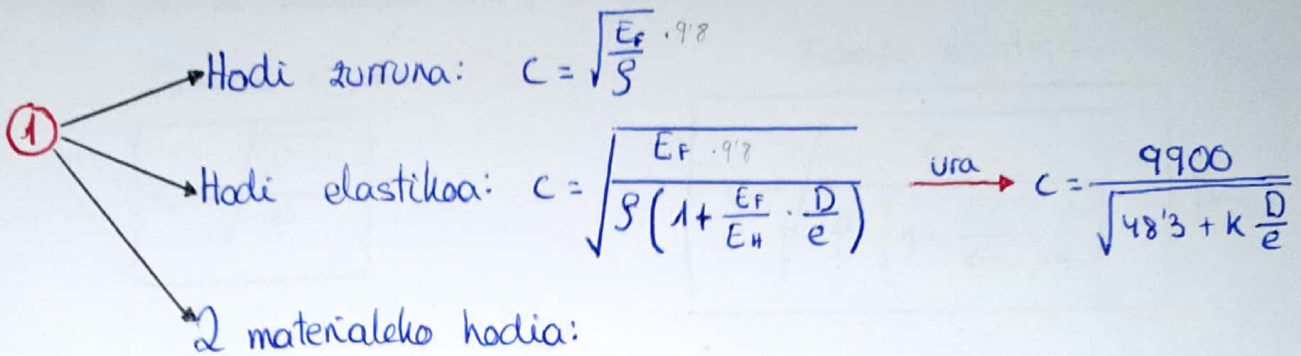 Hodi zurruna: C = √(E_F/ρ) · 9'8
1
Hodi elastikoa: C = √(E_F · 9'8 / ρ(1 + E_F/E_H · D/e)) ura → C = 9900 / √(48'3 + K D/e)
2 materialeko hodia: